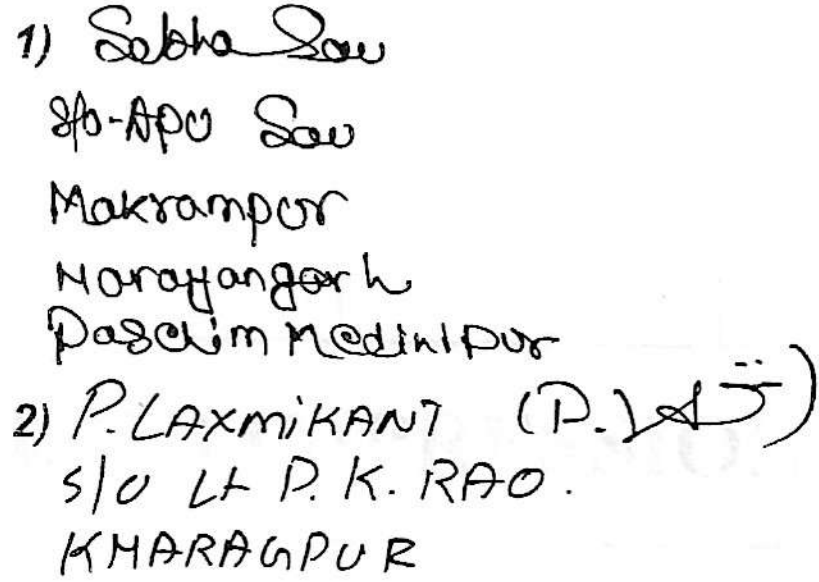 1) Sabha Sau
S/o-APU Sau
Makrampur
Narayangarh
Paschim Medinipur
2) P. LAXMiKANT (P.
S/O Lt D. K. RAO.
KHARAGPUR